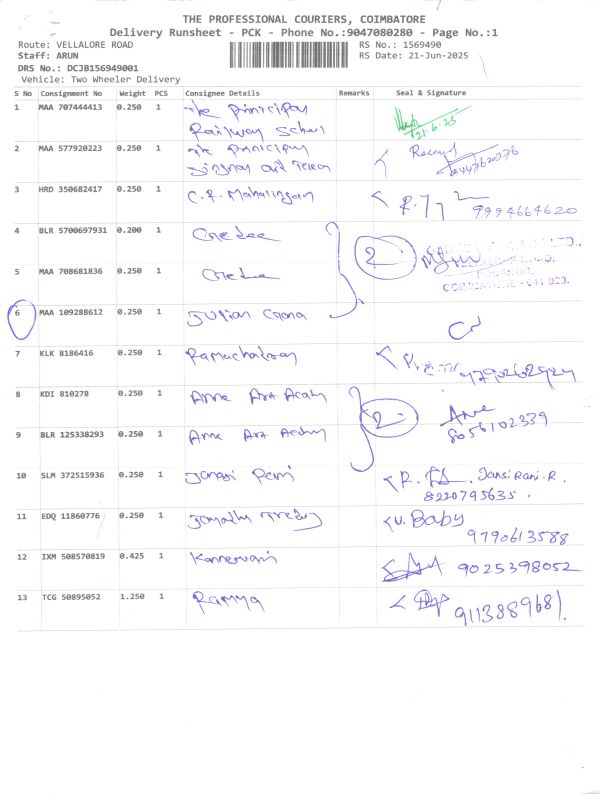 THE PROFESSIONAL COURIERS, COIMBATORE
Delivery Runsheet - PCK - Phone No.:9047080280 - Page No.:1
Route: VELLALORE ROAD
RS No.: 1569490
Staff: ARUN
RS Date: 21-Jun-2025
DRS No.: DCJB156949001
Vehicle: Two Wheeler Delivery
S No Consignment No Weight PCS Consignee Details Remarks Seal & Signature
1 MAA 707444413 0.250 1 The Principal
Railway School
21-6-25
2 MAA 577920223 0.250 1 The Principal
Received
3 HRD 350682417 0.250 1 C.R. Mahalingam
9994664620
4 BLR 5700697931 0.200 1 Credee
2
5 MAA 708681836 0.250 1 Credee
COIMBATORE - 641 023.
6 MAA 109288612 0.250 1 Julian
7 KLK 8186416 0.250 1 Ramachadran
8 KDI 810278 0.250 1 Anne Art Acady
2
Anne
8056102339
9 BLR 125338293 0.250 1 Anne Art Acdmy
10 SLM 372515936 0.250 1 Jansi Rani
R. Jansi Rani. R.
8220795635.
11 EDQ 11860776 0.250 1
U. Baby
9790613588
12 IXM 508570819 0.425 1 Kanneswari
9025398052
13 TCG 50895052 1.250 1 Ramya
9113889681.